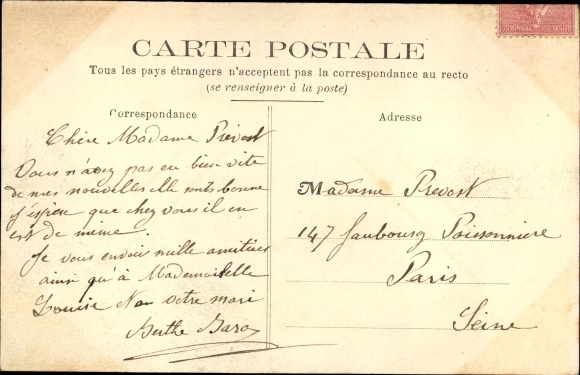 CARTE POSTALE
Tous les pays étrangers n'acceptent pas la correspondance au recto
(se renseigner à la poste)
Correspondance
Chère Madame Prévost
Vous n'avez pas eu bien vite
de mes nouvelles elle sont bonne
j'espère que chez vous il en
est de même.
Je vous envoie mille amitiées
ainsi qu'à Mademoiselle
Louise votre mari
Berthe
Adresse
Madame Prevost
147 faubourg Poissonniere
Paris
Seine